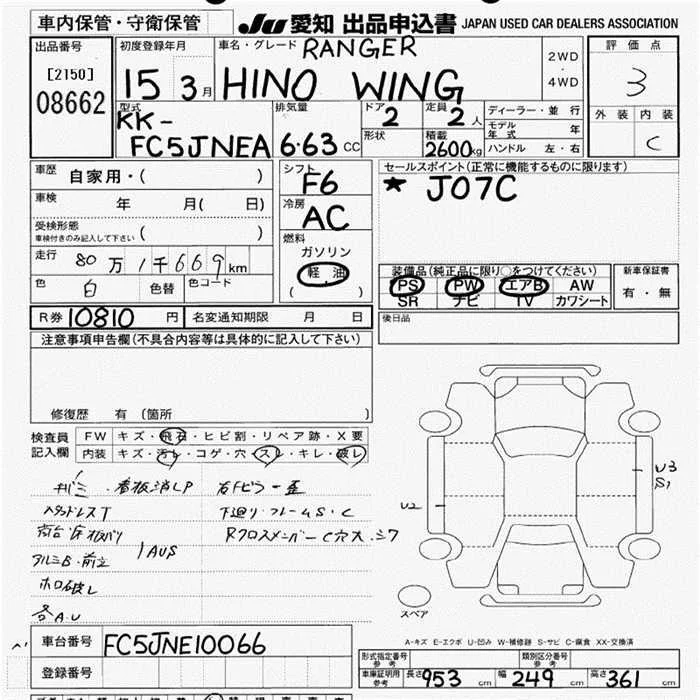 車内保管・守衛保管
JU 愛知 出品申込書 JAPAN USED CAR DEALERS ASSOCIATION
出品番号
[2150]
08662
初度登録年月
15 3 月
車名・グレード RANGER
HINO WING
2WD
・
4WD
評価点
3
外装 内装
C
型式
KK-
FC5JNEA
排気量
6.63 CC
ドア
2
定員
2 人
形状
積載
2600kg
ディーラー・並行
モデル年式 年
ハンドル 左・右
車歴 自家用・( )
車検 年 月( 日)
受検形態
車検付きのみ記入して下さい ( )
走行 80万1千669km
色 白 色替 色コード
シフト
F6
冷房
AC
燃料
ガソリン
軽油
( )
セールスポイント(正常に機能するものに限ります)
★ J07C
装備品(純正品に限り○をつけてください)
PS PW エアB AW
SR ナビ TV カワシート
新車保証書
有・無
R券 10810 円 名変通知期限 月 日
後日品
注意事項申告欄(不具合内容等は具体的に記入して下さい)
修復歴 有 (箇所 )
検査員
記入欄
FW キズ・飛石・ヒビ割・リペア跡・X要
内装 キズ・汚れ・コゲ・穴・スレ・キレ・破レ
キバミ 看板消しP 右Fピラー歪
下廻り フレームS・C
荷台・床板バリ Rクロスメンバー C穴大
アルミB・前立 AUS
ホロ破レ
各A.U
U2
U3
S1
スペア
A-キズ E-エクボ U-凹み W-補修跡 S-サビ C-腐食 XX-交換済
車台番号 FC5JNE10066
登録番号
形式指定番号
参考
類別区分番号
参考
車庫証明用
参考
長さ 953 cm 幅 249 cm 高さ 361 cm